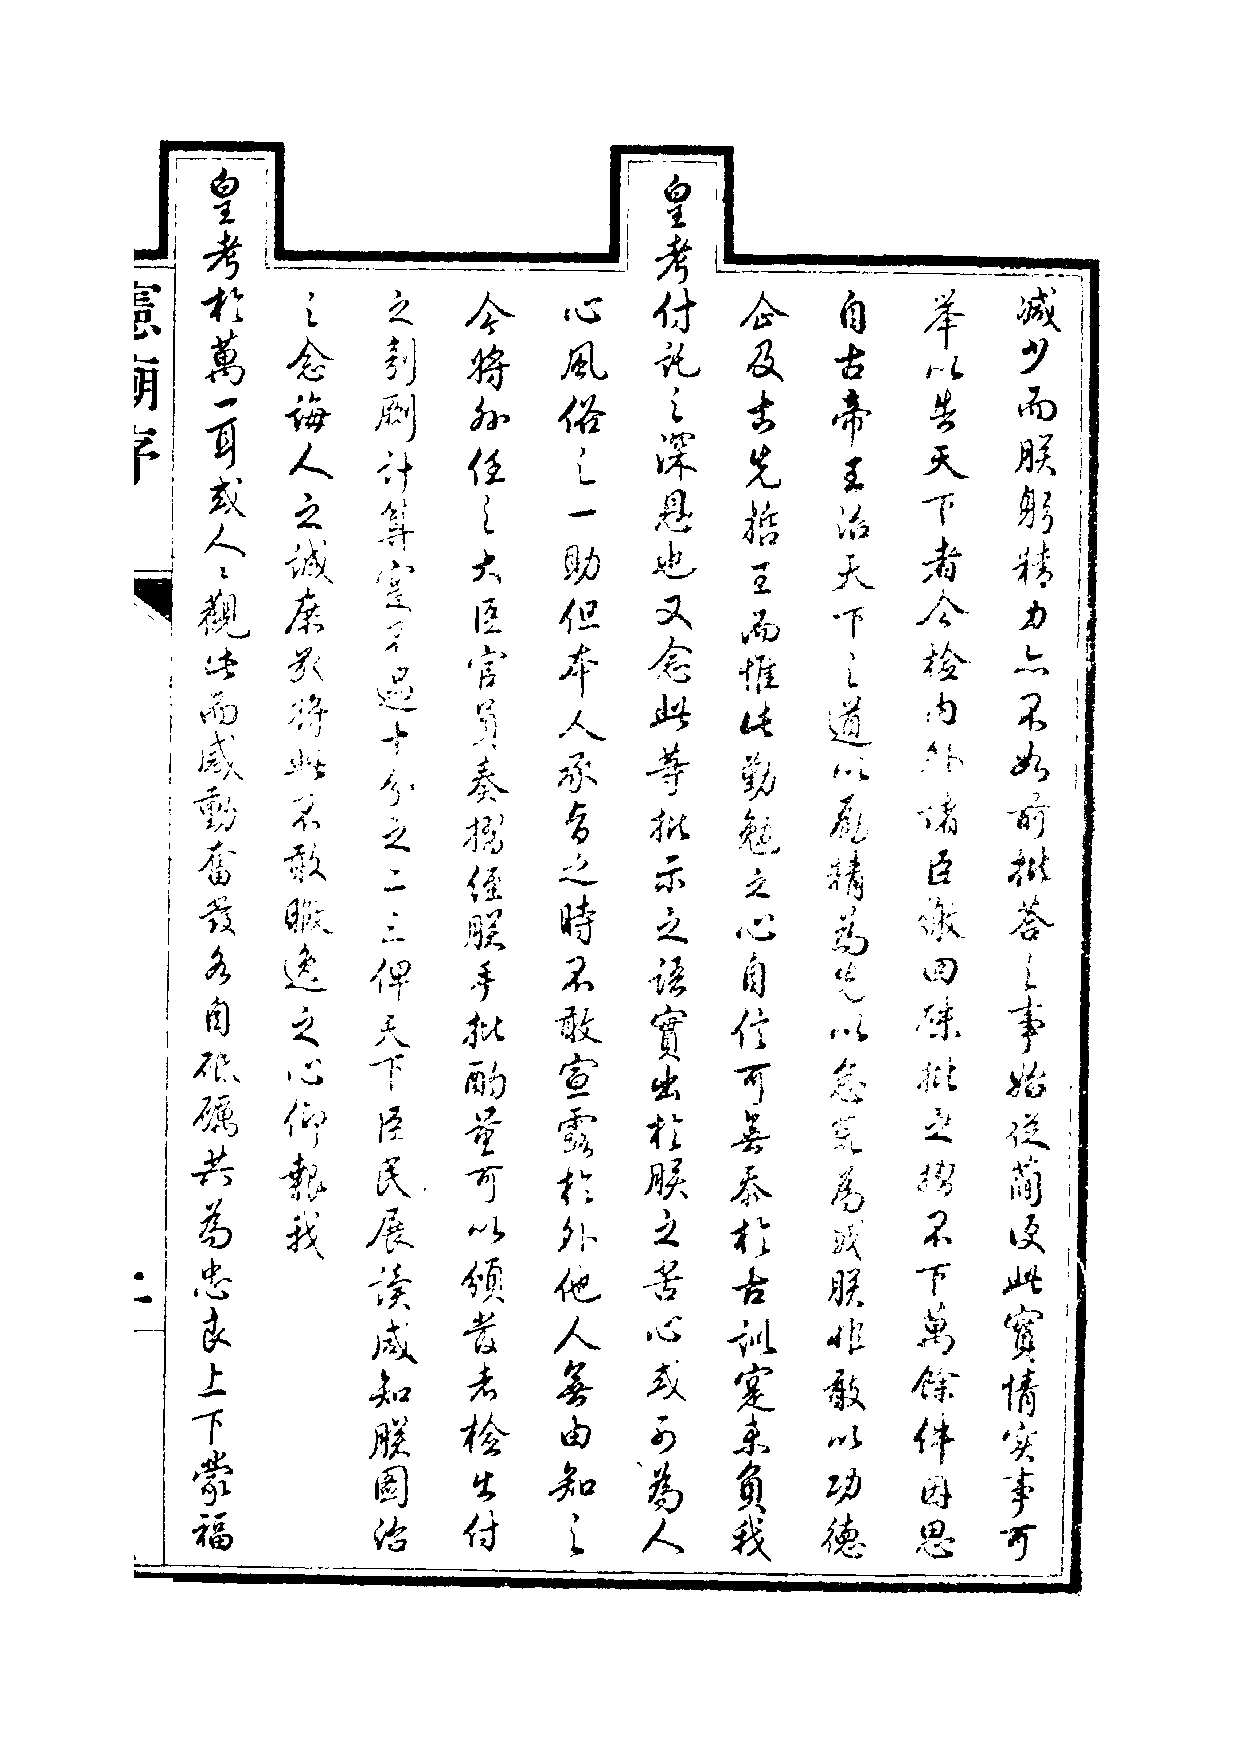 減少而朕躬精力亦不如前批答之事始從簡便此實情實事可
舉以告天下者今檢内外諸臣繳回硃批之摺不下萬餘件因思
自古帝王治天下之道以勵精為先以怠荒為戒朕非敢以功德
企及古先哲王而惟此勤勉之心自信可無忝於古訓寔未負我
皇考付託之深恩也又念此等批示之語實出於朕之苦心或可為人
心風俗之一助但本人承旨之時不敢宣露於外他人無由知之
今將外任之大臣官員奏摺經朕手批酌量可以頒發者檢出付
之剞劂計算寔不過十分之二三俾天下臣民展讀咸知朕圖治
之念誨人之誠庶敬將此不敢暇逸之心仰報我
皇考於萬一耳或人人觀此而感動奮發各自砥礪共為忠良上下蒙福
憲廟序
二